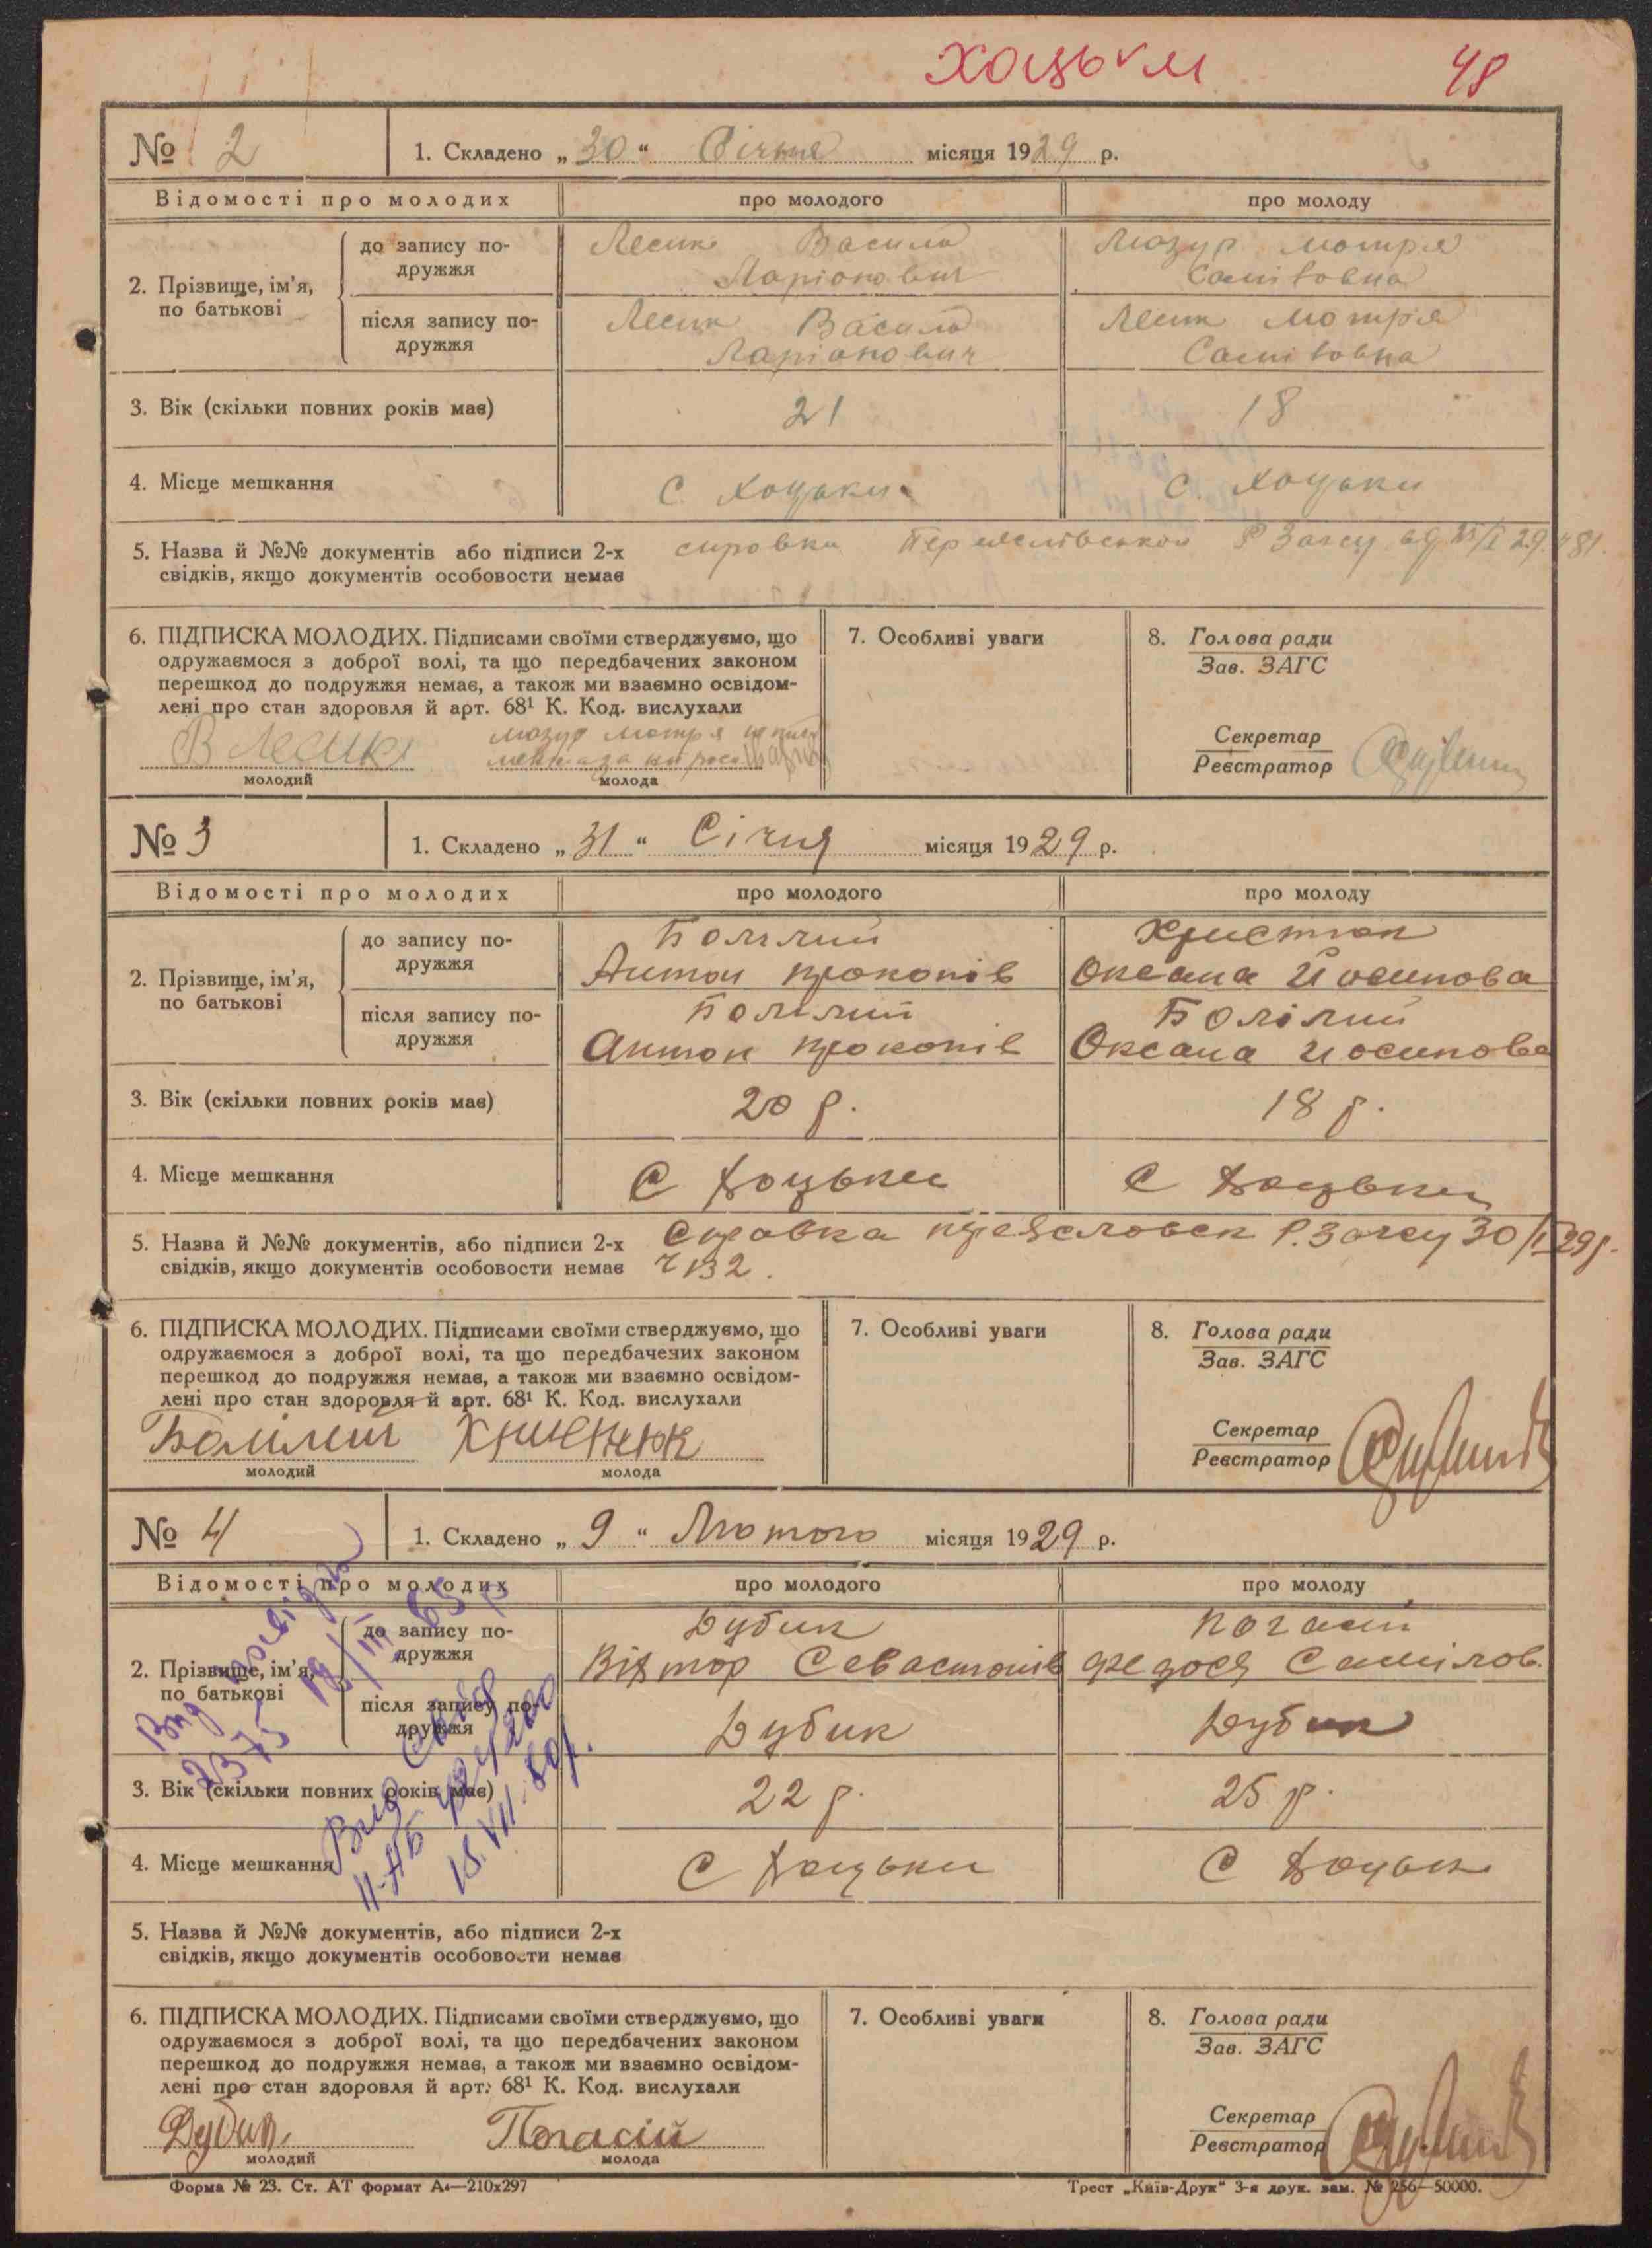 Хоцьки 48
№ 2 1. Складено „30“ Січня місяця 1929 р.
Відомості про молодих про молодого про молоду
2. Прізвище, ім'я, по батькові
до запису подружжя
Лесик Василь Мазур Мотря
Ларіонович Самійловна
після запису подружжя
Лесик Василь Лесик Мотря
Ларіонович Самійловна
3. Вік (скільки повних років має) 21 18
4. Місце мешкання С. Хоцьки С. Хоцьки
5. Назва й №№ документів або підписи 2-х
свідків, якщо документів особовости немає
справка Р Загсу
6. ПІДПИСКА МОЛОДИХ. Підписами своїми стверджуємо, що
одружаємося з доброї волі, та що передбачених законом
перешкод до подружжя немає, а також ми взаємно освідом-
лені про стан здоровля й арт. 68¹ К. Код. вислухали
В Лесик Мазур Мотря
молодий молода
7. Особливі уваги
8. Голова ради
Зав. ЗАГС
Секретар
Реєстратор
№ 3 1. Складено „31“ Січня місяця 1929 р.
Відомості про молодих про молодого про молоду
2. Прізвище, ім'я, по батькові
до запису подружжя
Болілий Христюк
Антон Прокопів Оксана Йосипова
після запису подружжя
Болілий Болілий
Антон Прокопів Оксана Йосипова
3. Вік (скільки повних років має) 20 р. 18 р.
4. Місце мешкання С Хоцьки С Хоцьки
5. Назва й №№ документів, або підписи 2-х
свідків, якщо документів особовости немає
Справка Р. Загсу 30/I 29 р.
ч 132.
6. ПІДПИСКА МОЛОДИХ. Підписами своїми стверджуємо, що
одружаємося з доброї волі, та що передбачених законом
перешкод до подружжя немає, а також ми взаємно освідом-
лені про стан здоровля й арт. 68¹ К. Код. вислухали
Болілий
молодий молода
7. Особливі уваги
8. Голова ради
Зав. ЗАГС
Секретар
Реєстратор
№ 4 1. Складено „9“ Лютого місяця 1929 р.
Відомості про молодих про молодого про молоду
2. Прізвище, ім'я, по батькові
до запису подружжя
Дубик Погасій
Віктор Севастопів Федося Самілов.
після запису подружжя
Дубик Дубик
3. Вік (скільки повних років має) 22 р. 25 р.
4. Місце мешкання С Хоцьки С Хоцьки
5. Назва й №№ документів, або підписи 2-х
свідків, якщо документів особовости немає
6. ПІДПИСКА МОЛОДИХ. Підписами своїми стверджуємо, що
одружаємося з доброї волі, та що передбачених законом
перешкод до подружжя немає, а також ми взаємно освідом-
лені про стан здоровля й арт. 68¹ К. Код. вислухали
Дубик Погасій
молодий молода
7. Особливі уваги
8. Голова ради
Зав. ЗАГС
Секретар
Реєстратор
Форма № 23. Ст. АТ формат А₄—210х297 Трест „Київ-Друк“ 3-я друк. зам. № 256—50000.